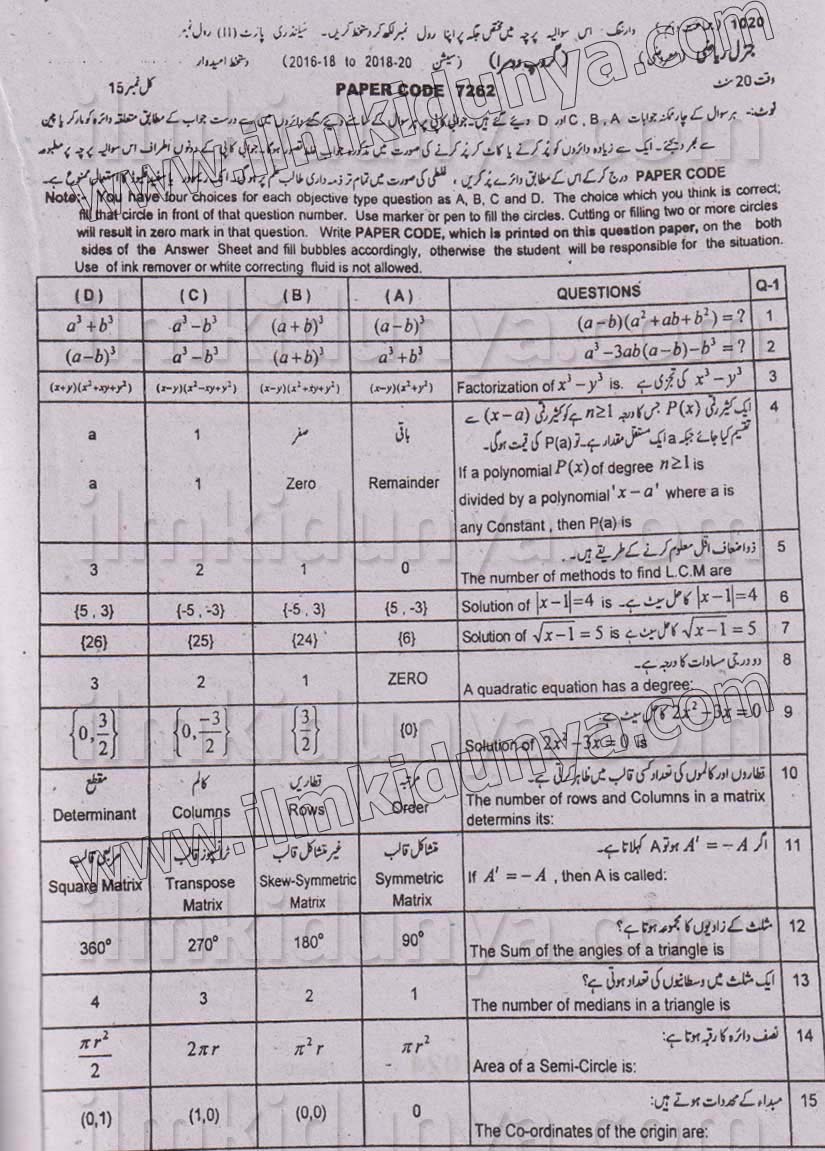 1020 وارننگ :۔ اس سوالیہ پرچہ میں مختص جگہ پر اپنا رول نمبر لکھ کر دستخط کریں۔ سیکنڈری پارٹ (II) رول نمبر
جنرل ریاضی (معروضی) (گروپ دوسرا) (سیشن 2016-18 to 2018-20) دستخط امیدوار
وقت 20 منٹ PAPER CODE 7262 کل نمبر 15
نوٹ:۔ ہر سوال کے چار ممکنہ جوابات C, B, A اور D دیئے گئے ہیں۔ جوابی کاپی پر ہر سوال کے سامنے دیئے گئے دائروں میں سے درست جواب کے مطابق متعلقہ دائرہ کو مارکر یا پین
سے بھر دیجئے۔ ایک سے زیادہ دائروں کو پُر کرنے یا کاٹ کر پُر کرنے کی صورت میں مذکورہ جواب غلط تصور ہوگا۔ جوابی کاپی کے دونوں اطراف اس سوالیہ پرچہ پر مطبوعہ
PAPER CODE درج کر کے اس کے مطابق دائرے پُر کریں، غلطی کی صورت میں تمام تر ذمہ داری طالب علم پر ہوگی۔ انک ریموور یا سفید فلیوڈ کا استعمال ممنوع ہے۔
Note:- You have four choices for each objective type question as A, B, C and D. The choice which you think is correct;
fill that circle in front of that question number. Use marker or pen to fill the circles. Cutting or filling two or more circles
will result in zero mark in that question. Write PAPER CODE, which is printed on this question paper, on the both
sides of the Answer Sheet and fill bubbles accordingly, otherwise the student will be responsible for the situation.
Use of ink remover or white correcting fluid is not allowed.
(D) (C) (B) (A) QUESTIONS Q-1
a³+b³ a³−b³ (a+b)³ (a−b)³ (a−b)(a²+ab+b²)=? 1
(a−b)³ a³−b³ (a+b)³ a³+b³ a³−3ab(a−b)−b³=? 2
(x+y)(x²+xy+y²) (x−y)(x²−xy+y²) (x−y)(x²+xy+y²) (x−y)(x²+y²) Factorization of x³−y³ is. x³−y³ کی تجزی ہے 3
ایک کثیر رقمی P(x) جس کا درجہ n≥1 ہے کو کثیر رقمی (x−a) سے 4
a 1 صفر باقی تقسیم کیا جائے جبکہ a ایک مستقل مقدار ہے۔ تو P(a) کی قیمت ہوگی۔
a 1 Zero Remainder If a polynomial P(x) of degree n≥1 is
divided by a polynomial 'x−a' where a is
any Constant , then P(a) is
ذواضعاف اقل معلوم کرنے کے طریقے ہیں۔ 5
3 2 1 0 The number of methods to find L.C.M are
{5 , 3} {-5 , -3} {-5 , 3} {5 , -3} Solution of |x−1|=4 is |x−1|=4 کا حل سیٹ ہے۔ 6
{26} {25} {24} {6} Solution of √x−1 = 5 is √x−1 = 5 کا حل سیٹ ہے 7
دو درجی مساوات کا درجہ ہے۔ 8
3 2 1 ZERO A quadratic equation has a degree:
2x²−3x=0 کا حل سیٹ ہے: 9
{0, 3/2} {0, −3/2} {3/2} {0} Solution of 2x²−3x=0 is
مقطع کالم قطاریں مرتبہ قطاروں اور کالموں کی تعداد کسی قالب میں ظاہر کرتی ہے۔ 10
Determinant Columns Rows Order The number of rows and Columns in a matrix
determins its:
مربعی قالب ٹرانسپوز قالب غیر متشاکل قالب متشاکل قالب اگر A' = −A ہو تو A کہلاتا ہے۔ 11
Square Matrix Transpose Skew-Symmetric Symmetric If A' = −A , then A is called:
Matrix Matrix Matrix
مثلث کے زاویوں کا مجموعہ ہوتا ہے؟ 12
360° 270° 180° 90° The Sum of the angles of a triangle is
ایک مثلث میں وسطانیوں کی تعداد ہوتی ہے؟ 13
4 3 2 1 The number of medians in a triangle is
نصف دائرہ کا رقبہ ہوتا ہے: 14
πr²/2 2πr π²r πr² Area of a Semi-Circle is:
مبداء کے محددات ہوتے ہیں: 15
(0,1) (1,0) (0,0) 0 The Co-ordinates of the origin are:
www.ilmkidunya.com
ilmkidunya.com